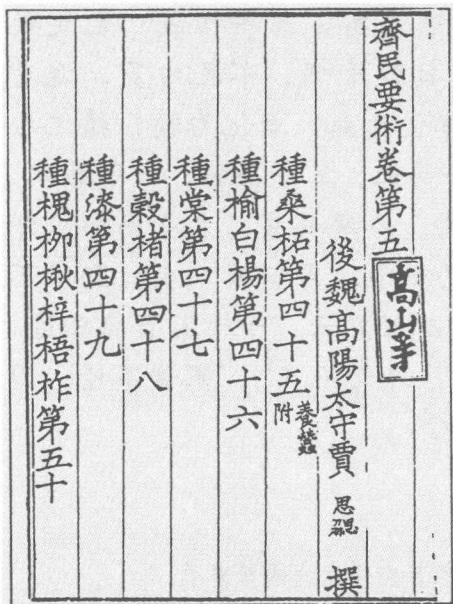 齊民要術卷第五
高山寺
後魏高陽太守賈 思勰 撰
種桒柘第四十五 養蠶附
種榆白楊第四十六
種棠第四十七
種穀楮第四十八
種漆第四十九
種槐柳楸梓梧柞第五十